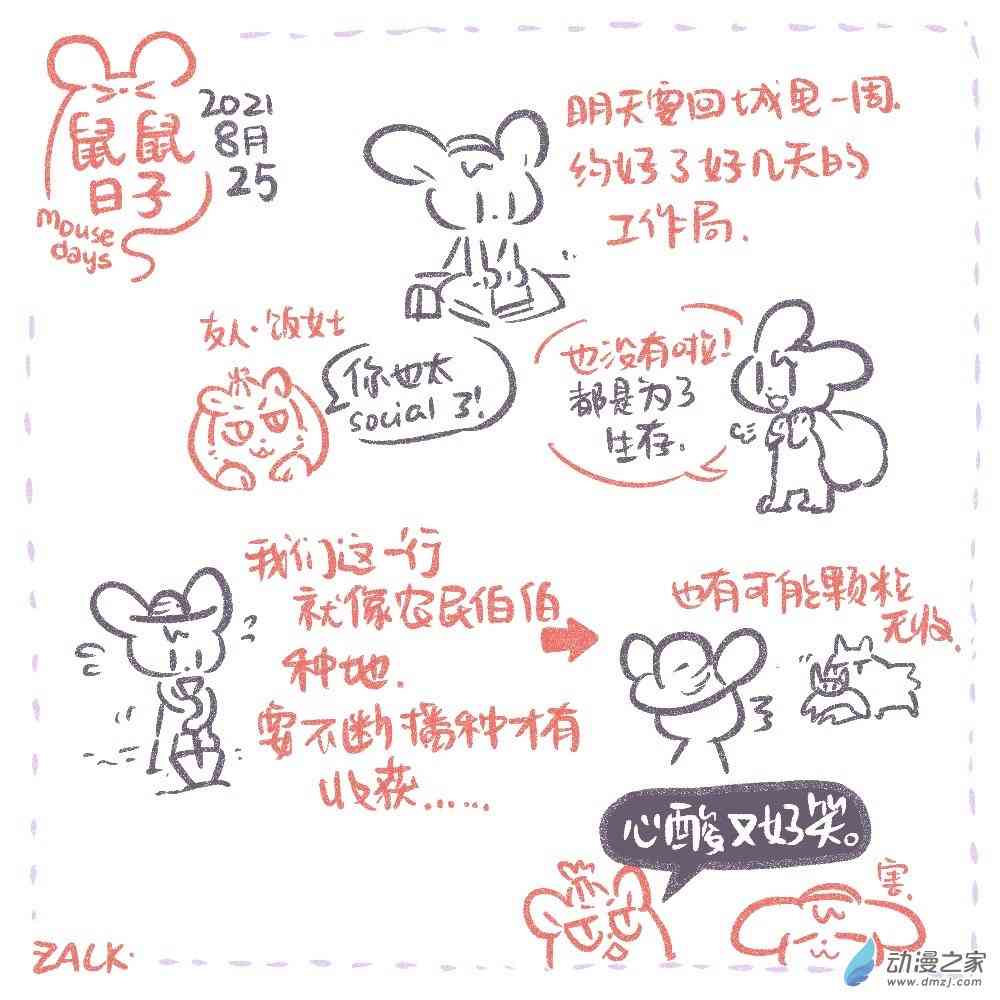 鼠鼠
日子
mouse
days
2021
8月
25
明天要回城里一周.
约好了好几天的
工作局.
友人·饭女士
你也太
social了!
也没有啦!
都是为了
生存.
我们这一行
就像农民伯伯
种地.
要不断播种才有
收获......
也有可能颗粒
无收.
心酸又好笑。
害.
ZALK.
动漫之家
www.dmzj.com